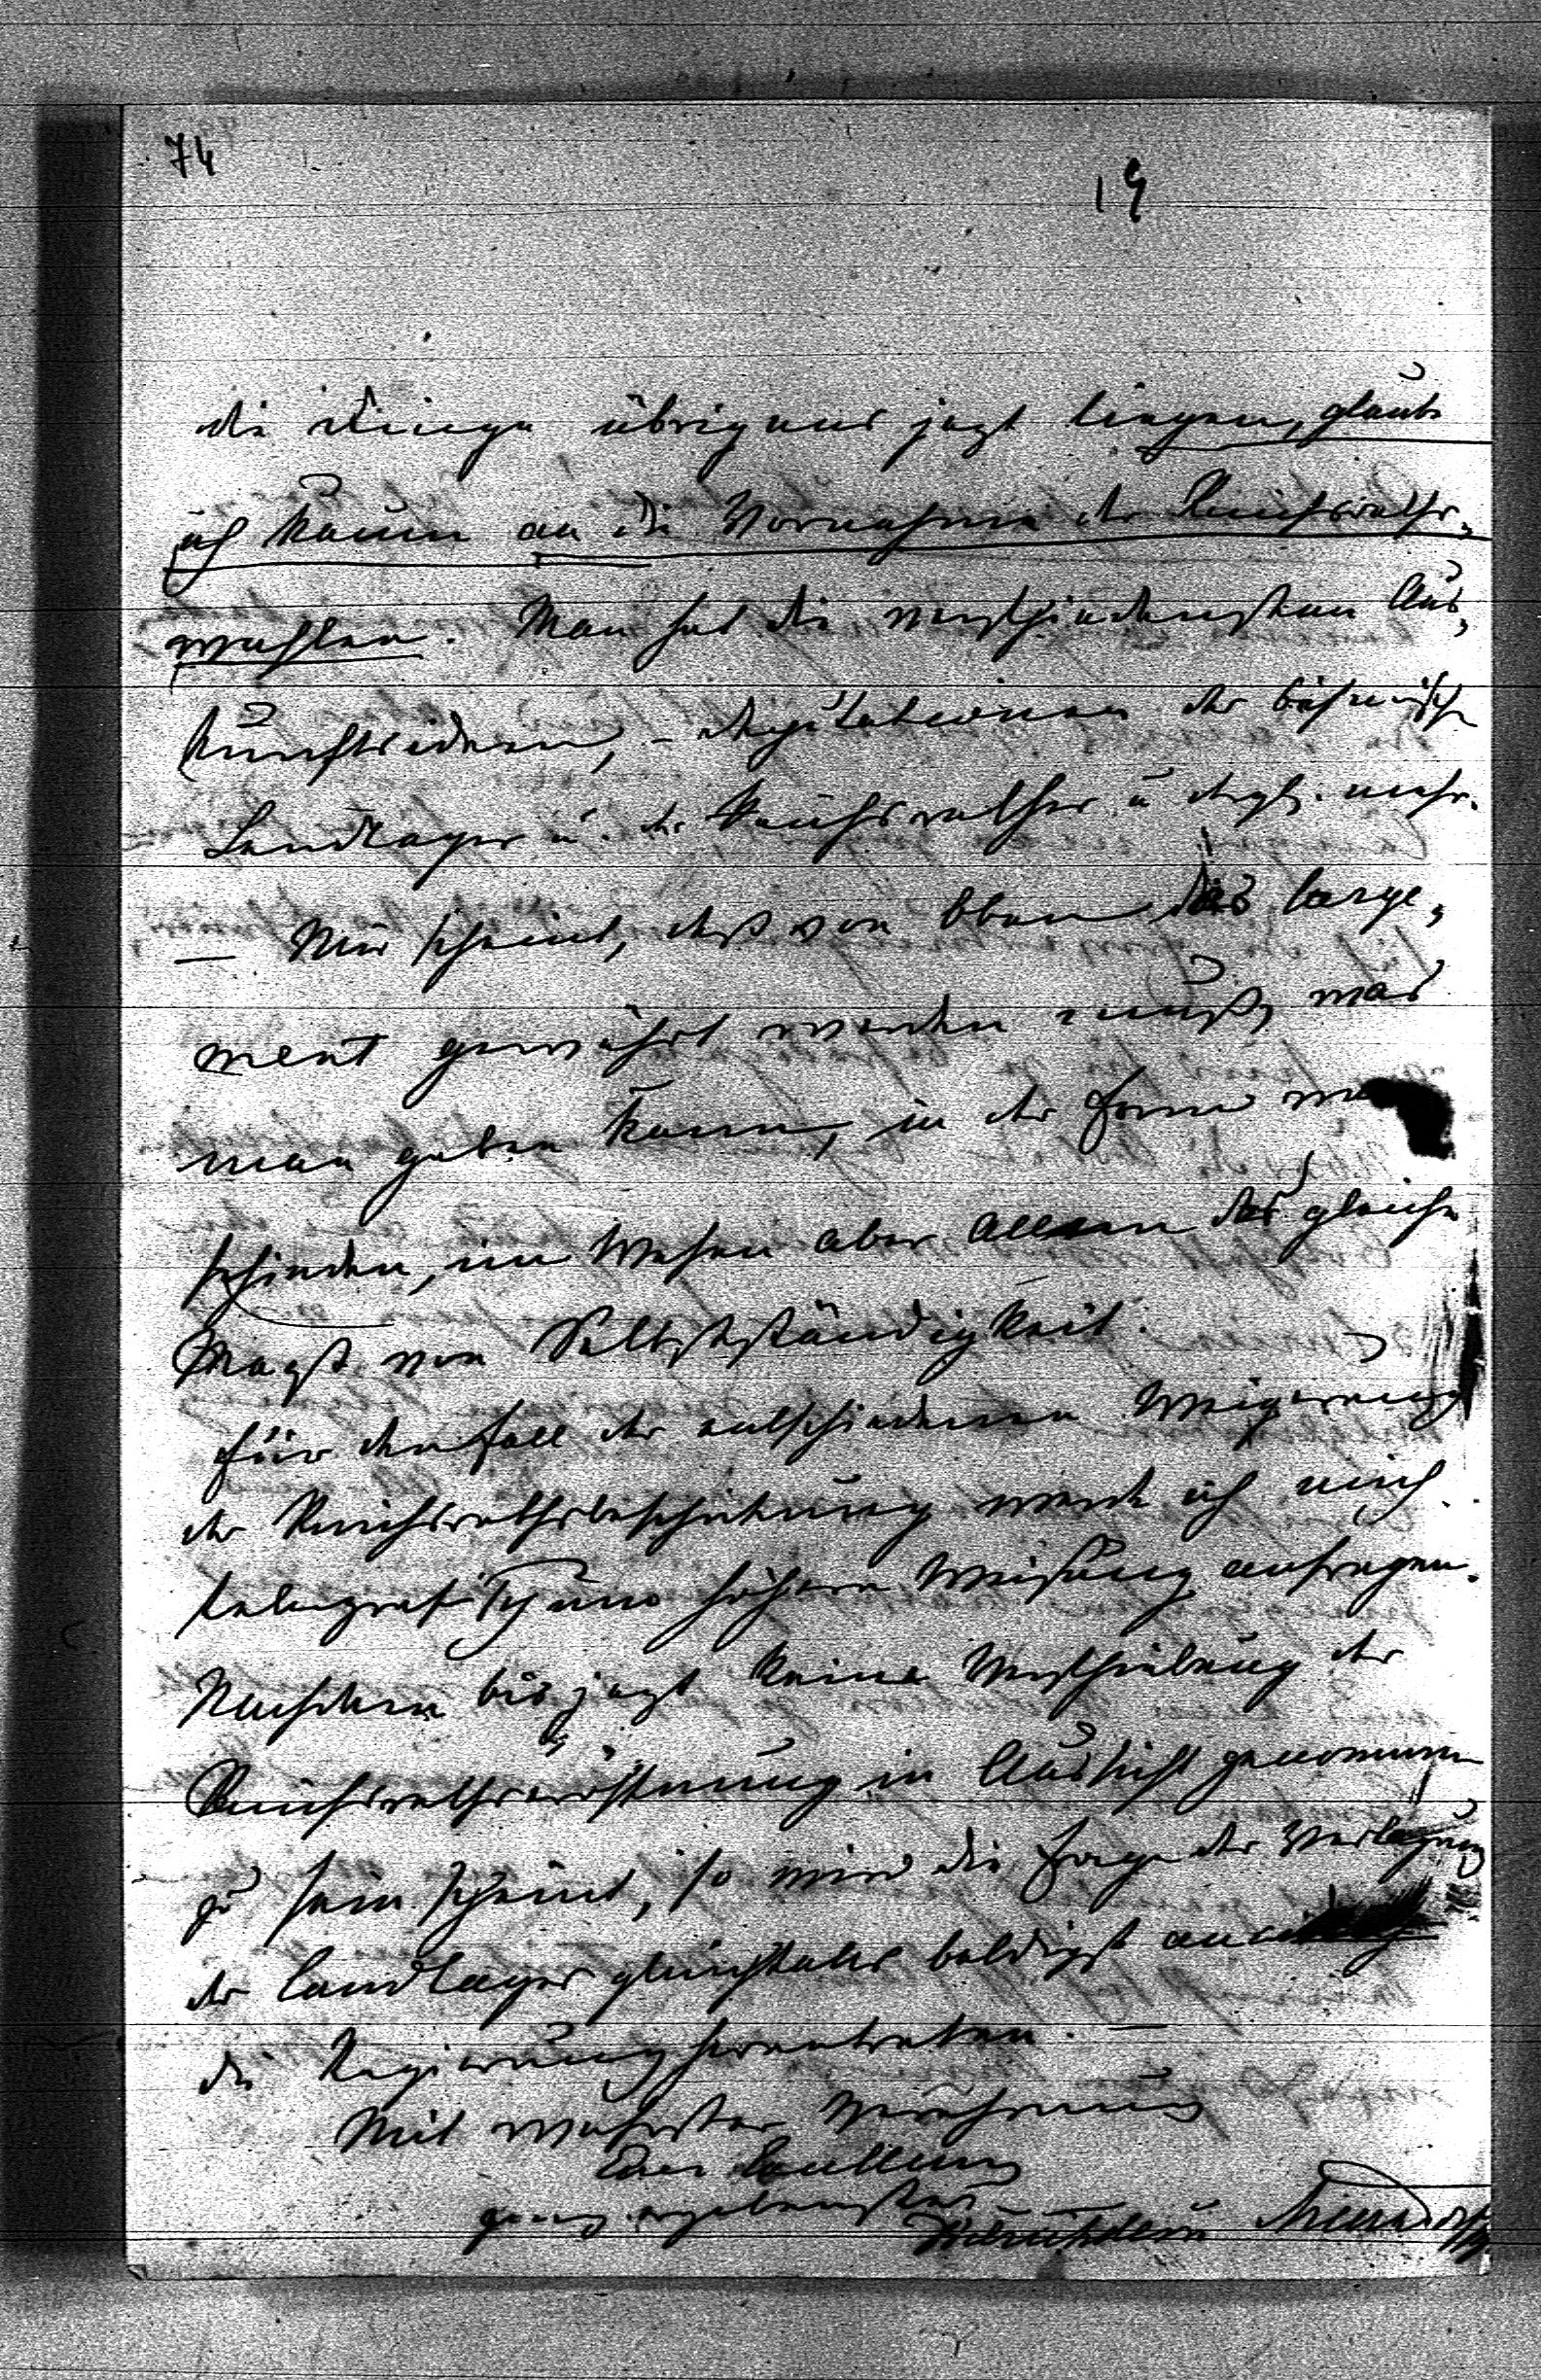 74
19
die Dinge übrigens jezt liegen, glaube
ich kaum an die Vornahme der Reichsraths-
wahlen. Man hat die verschiedensten Aus-
kunftsideen, – Deputationen des böhmischen
Landtages u. des Reichsrathes u dergl. mehr.
— Mir scheint, daß von Oben das large-
ment gewährt werden muß, was
man geben kann, in der Form
schieden, im Wesen aber allen das gleiche
Maaß von Selbstständigkeit.
Für den Fall der entschiedenen Weigerung
der Reichsrathsbeschickung werde ich mich
telegrafisch um höhere Weisung anfragen.
Nachdem bis jezt keine Verschiebung der
Reichsrathseröffnung in Aussicht genommen
zu sein scheint, so wird die Frage der Vertagung
der Landtages gleichfalls baldigst an
die Regierung herantreten. —
Mit wahrster Verehrung
Euer Excellenz
ganz ergebenster